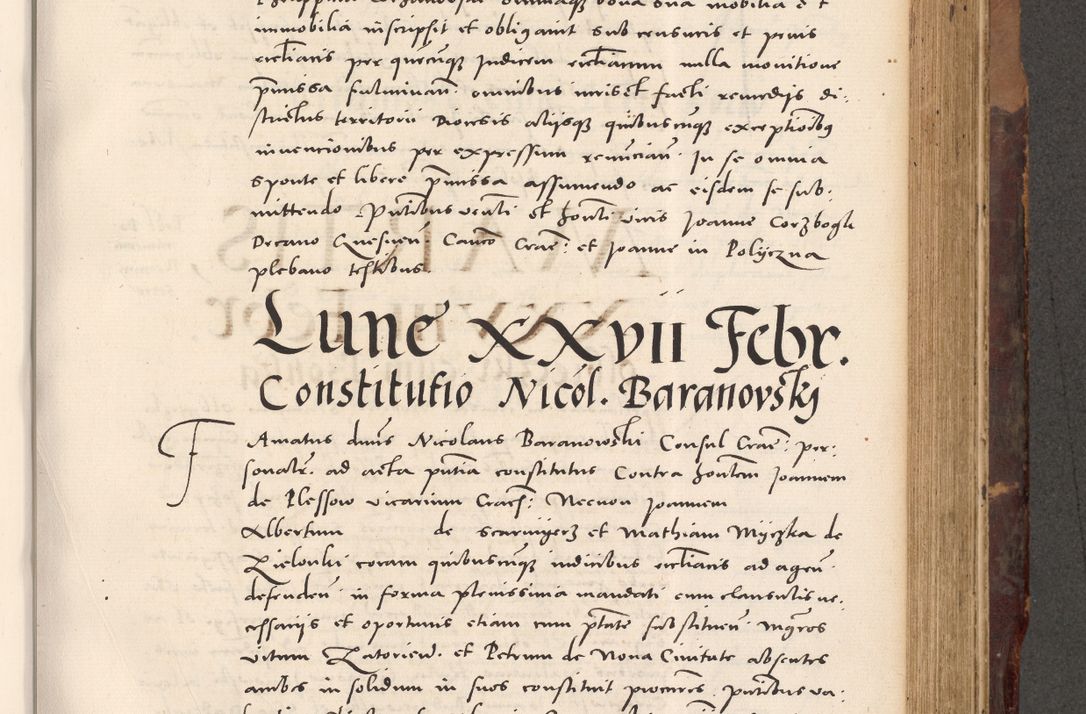 immobilia inscripsit et obligavit sub censuris et penis
eccl̃iacis per quẽcũqꝫ Judicem eccl̃iarum nulla monitione
p̃missa fulminan̄. omnibus iuris et facti remedijs di-
strictus territorii Diocesis alijsqꝫ quibuscũqꝫ exceptioibꝫ
invencionibus per expressum renũcian̄. In se omnia
sponte et libere p̃missa assumendo ac eisdem se sub-
mittendo. Pñtibus veñli et hoñti viris Joanne Corzbogh
Decano Quesnen̄. Canco Crac̄: et Joanne in Polijczna
plebano testibus.
Lune XXVII Febr.
Constitutio Nicol. Baranovskj
Famatus dñus Nicolaus Baranowski Consul Crac̄: per-
sonalr̃. ad acta pñtia constitutus Contra hoñtem Joannem
de Plessow vicarium Crac̄: Necnon Joannem
Albertum de et Mathiam Mijczka de
Zielonki coram quibuscũqꝫ iudicibus eccl̃iacis ad agen̄.
defenden̄. in forma plenissima mandati cum clausulis ne-
cessarijs et oportunis etiam cum p̃tate substituen̄. mg̃ros
vitum Zatoriew. et Petrum de Nova Civitate absentes
ambos in solidum in suos constituit procures. pñtibus va-